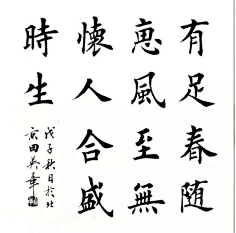 有足春随
恵風至無
懷人合盛
時生
戊子秋月於北
京田英章